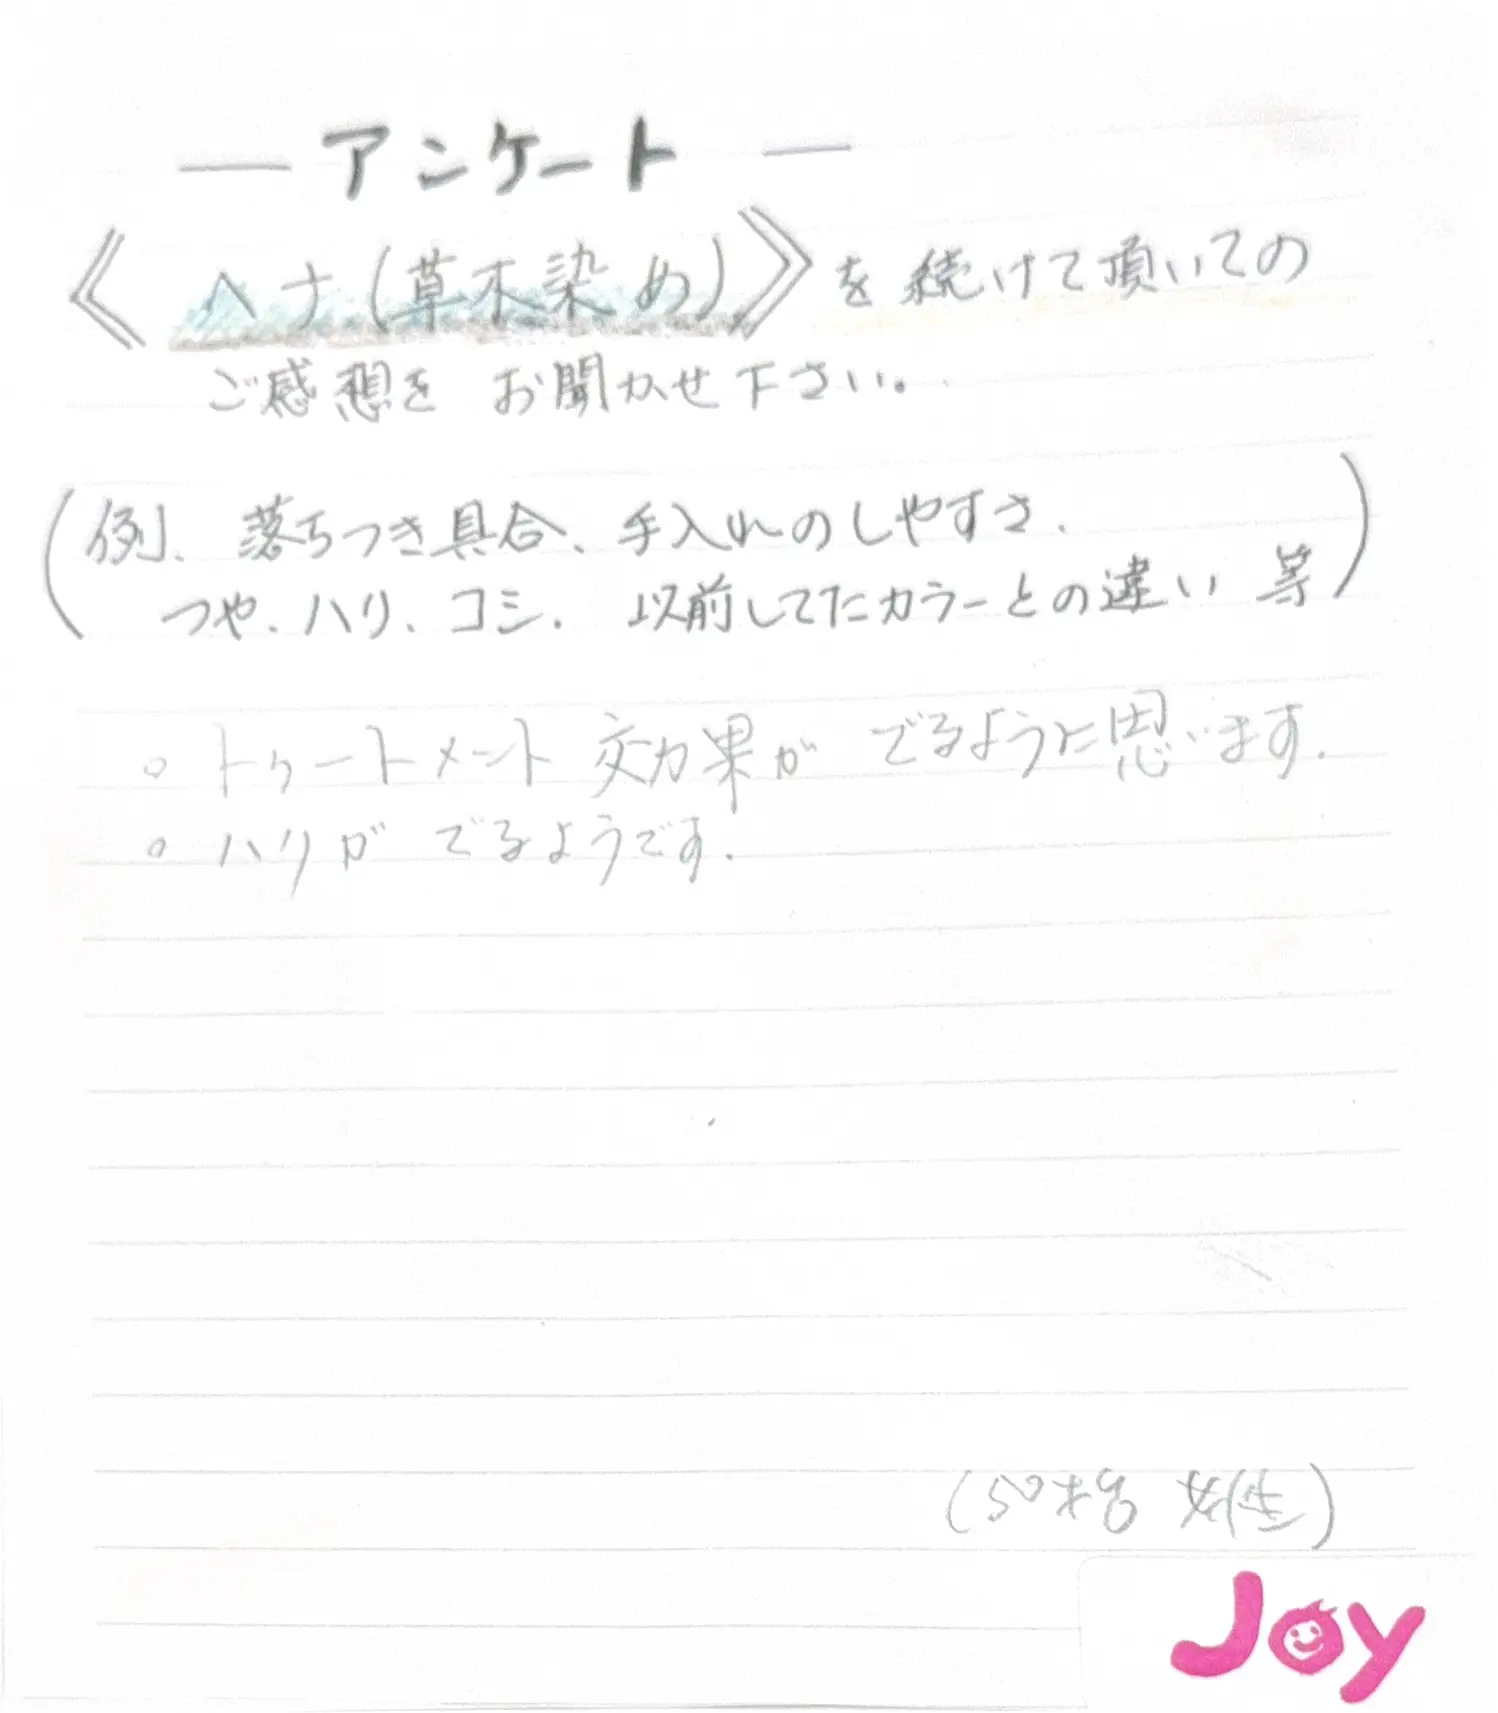 ― アンケート ―
《ヘナ(草木染め)》を続けて頂いての
ご感想を お聞かせ下さい。
(例、落ちつき具合、手入れのしやすさ、
つや、ハリ、コシ、以前してたカラーとの違い 等)
○ トリートメント 効果が でるように思います.
○ ハリが でるようです.
(50才台 女性)
Joy